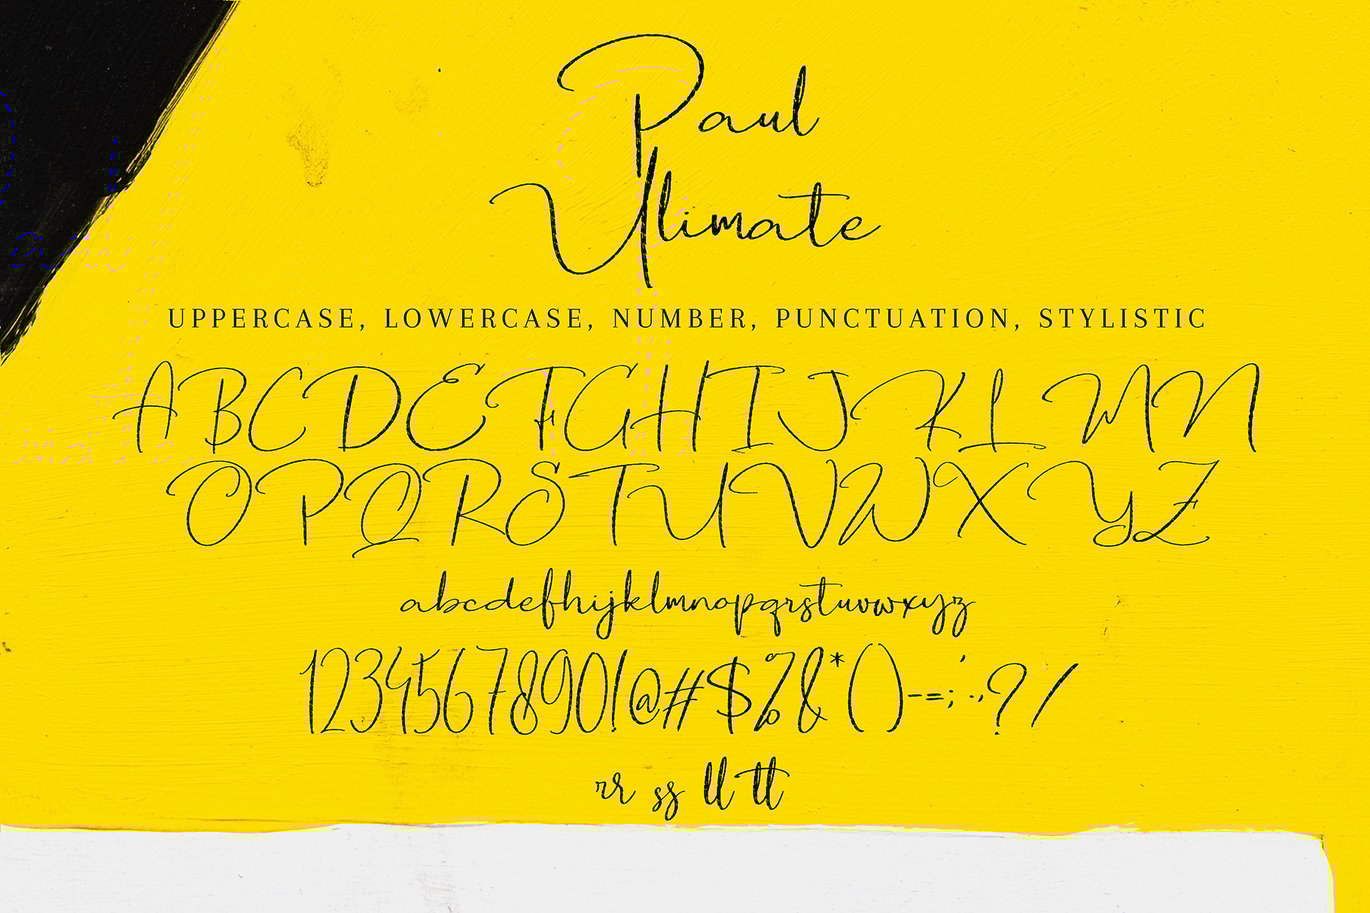 Paul
Ulimate
UPPERCASE, LOWERCASE, NUMBER, PUNCTUATION, STYLISTIC
ABCDEFGHIJKLMN
OPQRSTUVWXYZ
abcdefhijklmnopqrstuvwxyz
1234567890!@#$%&*()-=;:.,'?/
rr ss ll tt